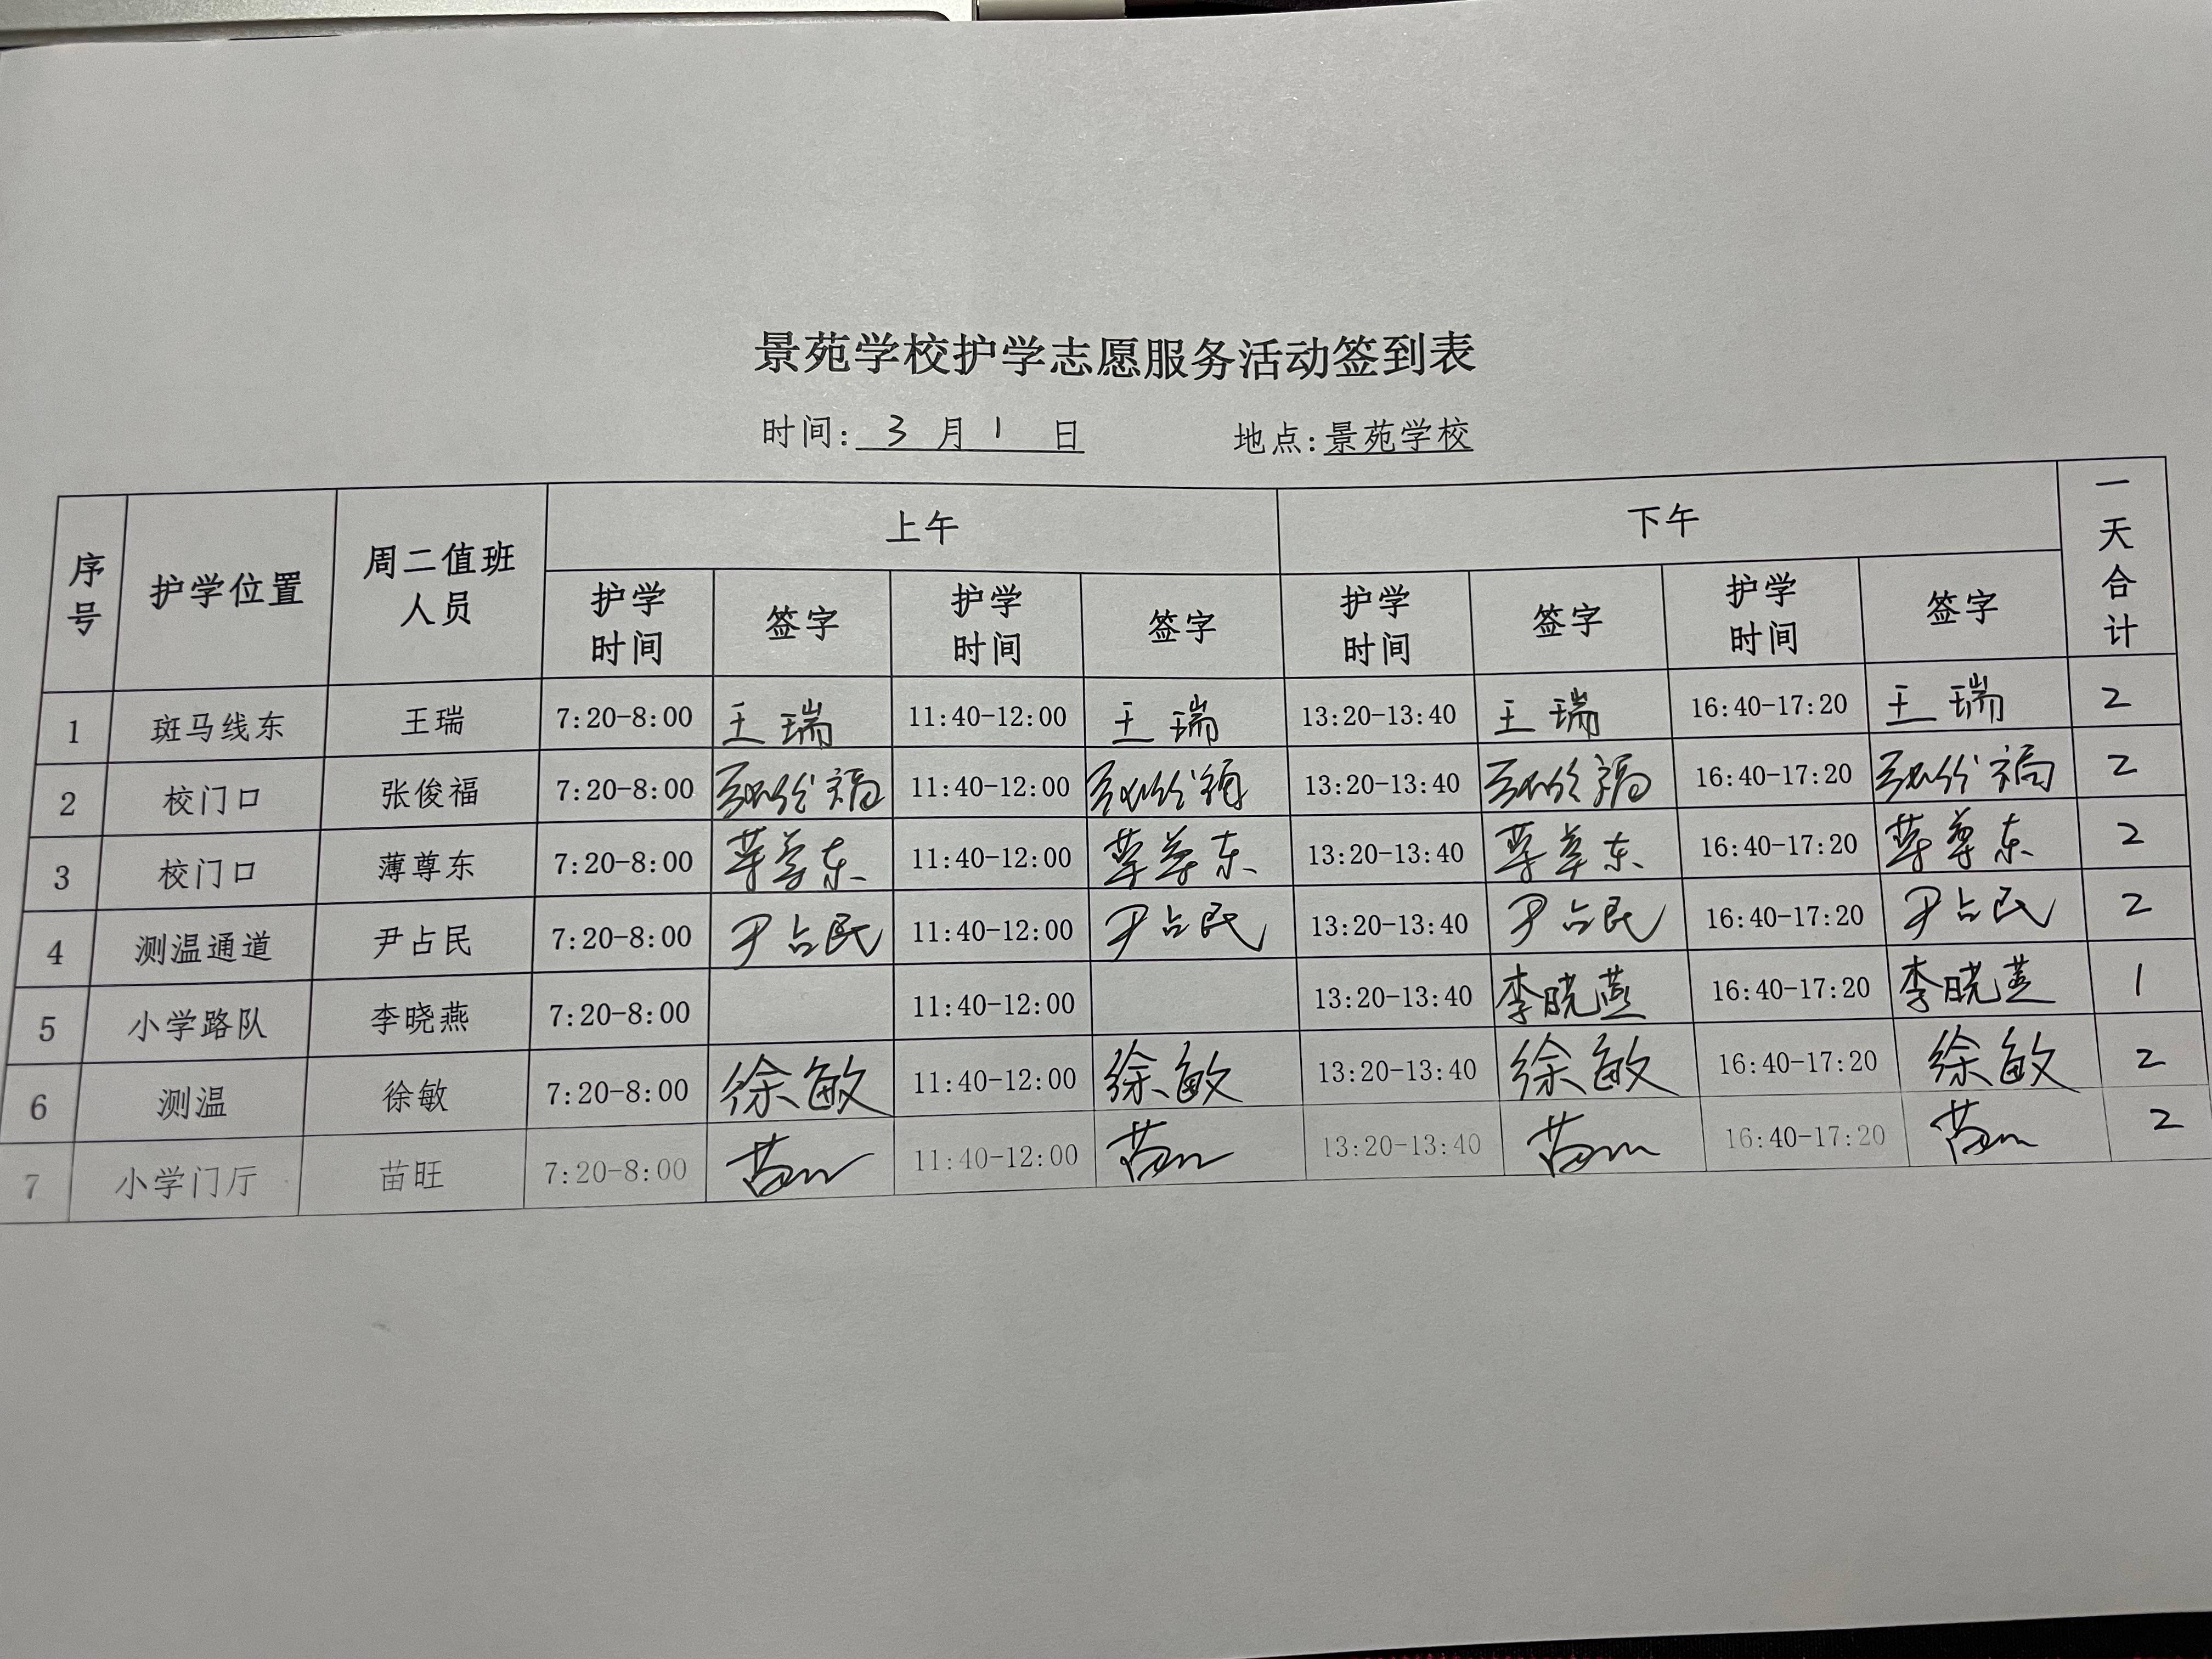 景苑学校护学志愿服务活动签到表
时间: 3 月 1 日 地点:景苑学校
序号 护学位置 周二值班人员 上午 下午 一天合计
护学时间 签字 护学时间 签字 护学时间 签字 护学时间 签字
1 斑马线东 王瑞 7:20-8:00 王瑞 11:40-12:00 王瑞 13:20-13:40 王瑞 16:40-17:20 王瑞 2
2 校门口 张俊福 7:20-8:00 张俊福 11:40-12:00 张俊福 13:20-13:40 张俊福 16:40-17:20 张俊福 2
3 校门口 薄尊东 7:20-8:00 薄尊东 11:40-12:00 薄尊东 13:20-13:40 薄尊东 16:40-17:20 薄尊东 2
4 测温通道 尹占民 7:20-8:00 尹占民 11:40-12:00 尹占民 13:20-13:40 尹占民 16:40-17:20 尹占民 2
5 小学路队 李晓燕 7:20-8:00 11:40-12:00 13:20-13:40 李晓燕 16:40-17:20 李晓燕 1
6 测温 徐敏 7:20-8:00 徐敏 11:40-12:00 徐敏 13:20-13:40 徐敏 16:40-17:20 徐敏 2
7 小学门厅 苗旺 7:20-8:00 苗旺 11:40-12:00 苗旺 13:20-13:40 苗旺 16:40-17:20 苗旺 2